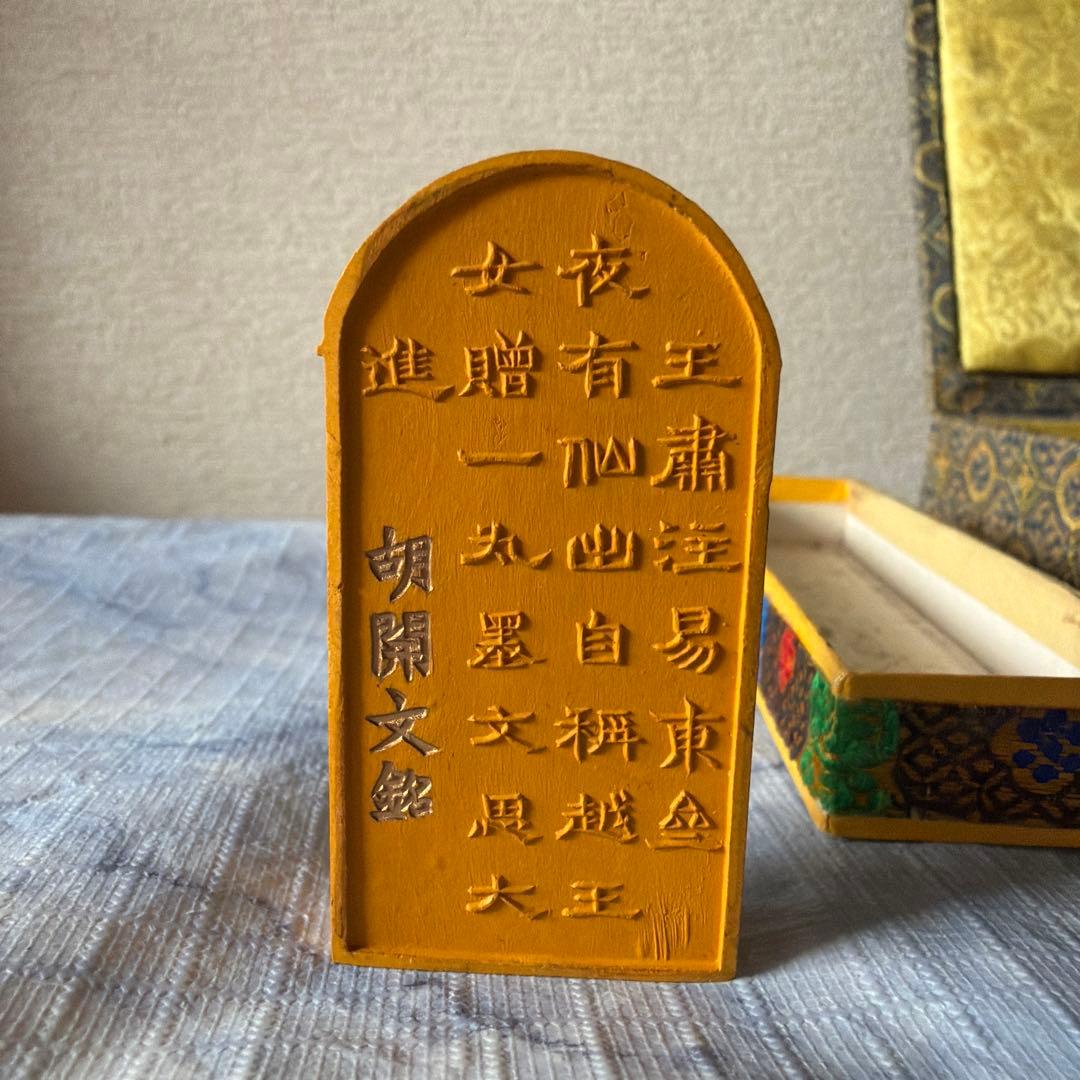 王肅注易東
夜有仙出自稱越王
女贈一丸墨文思大
進
胡開文銘